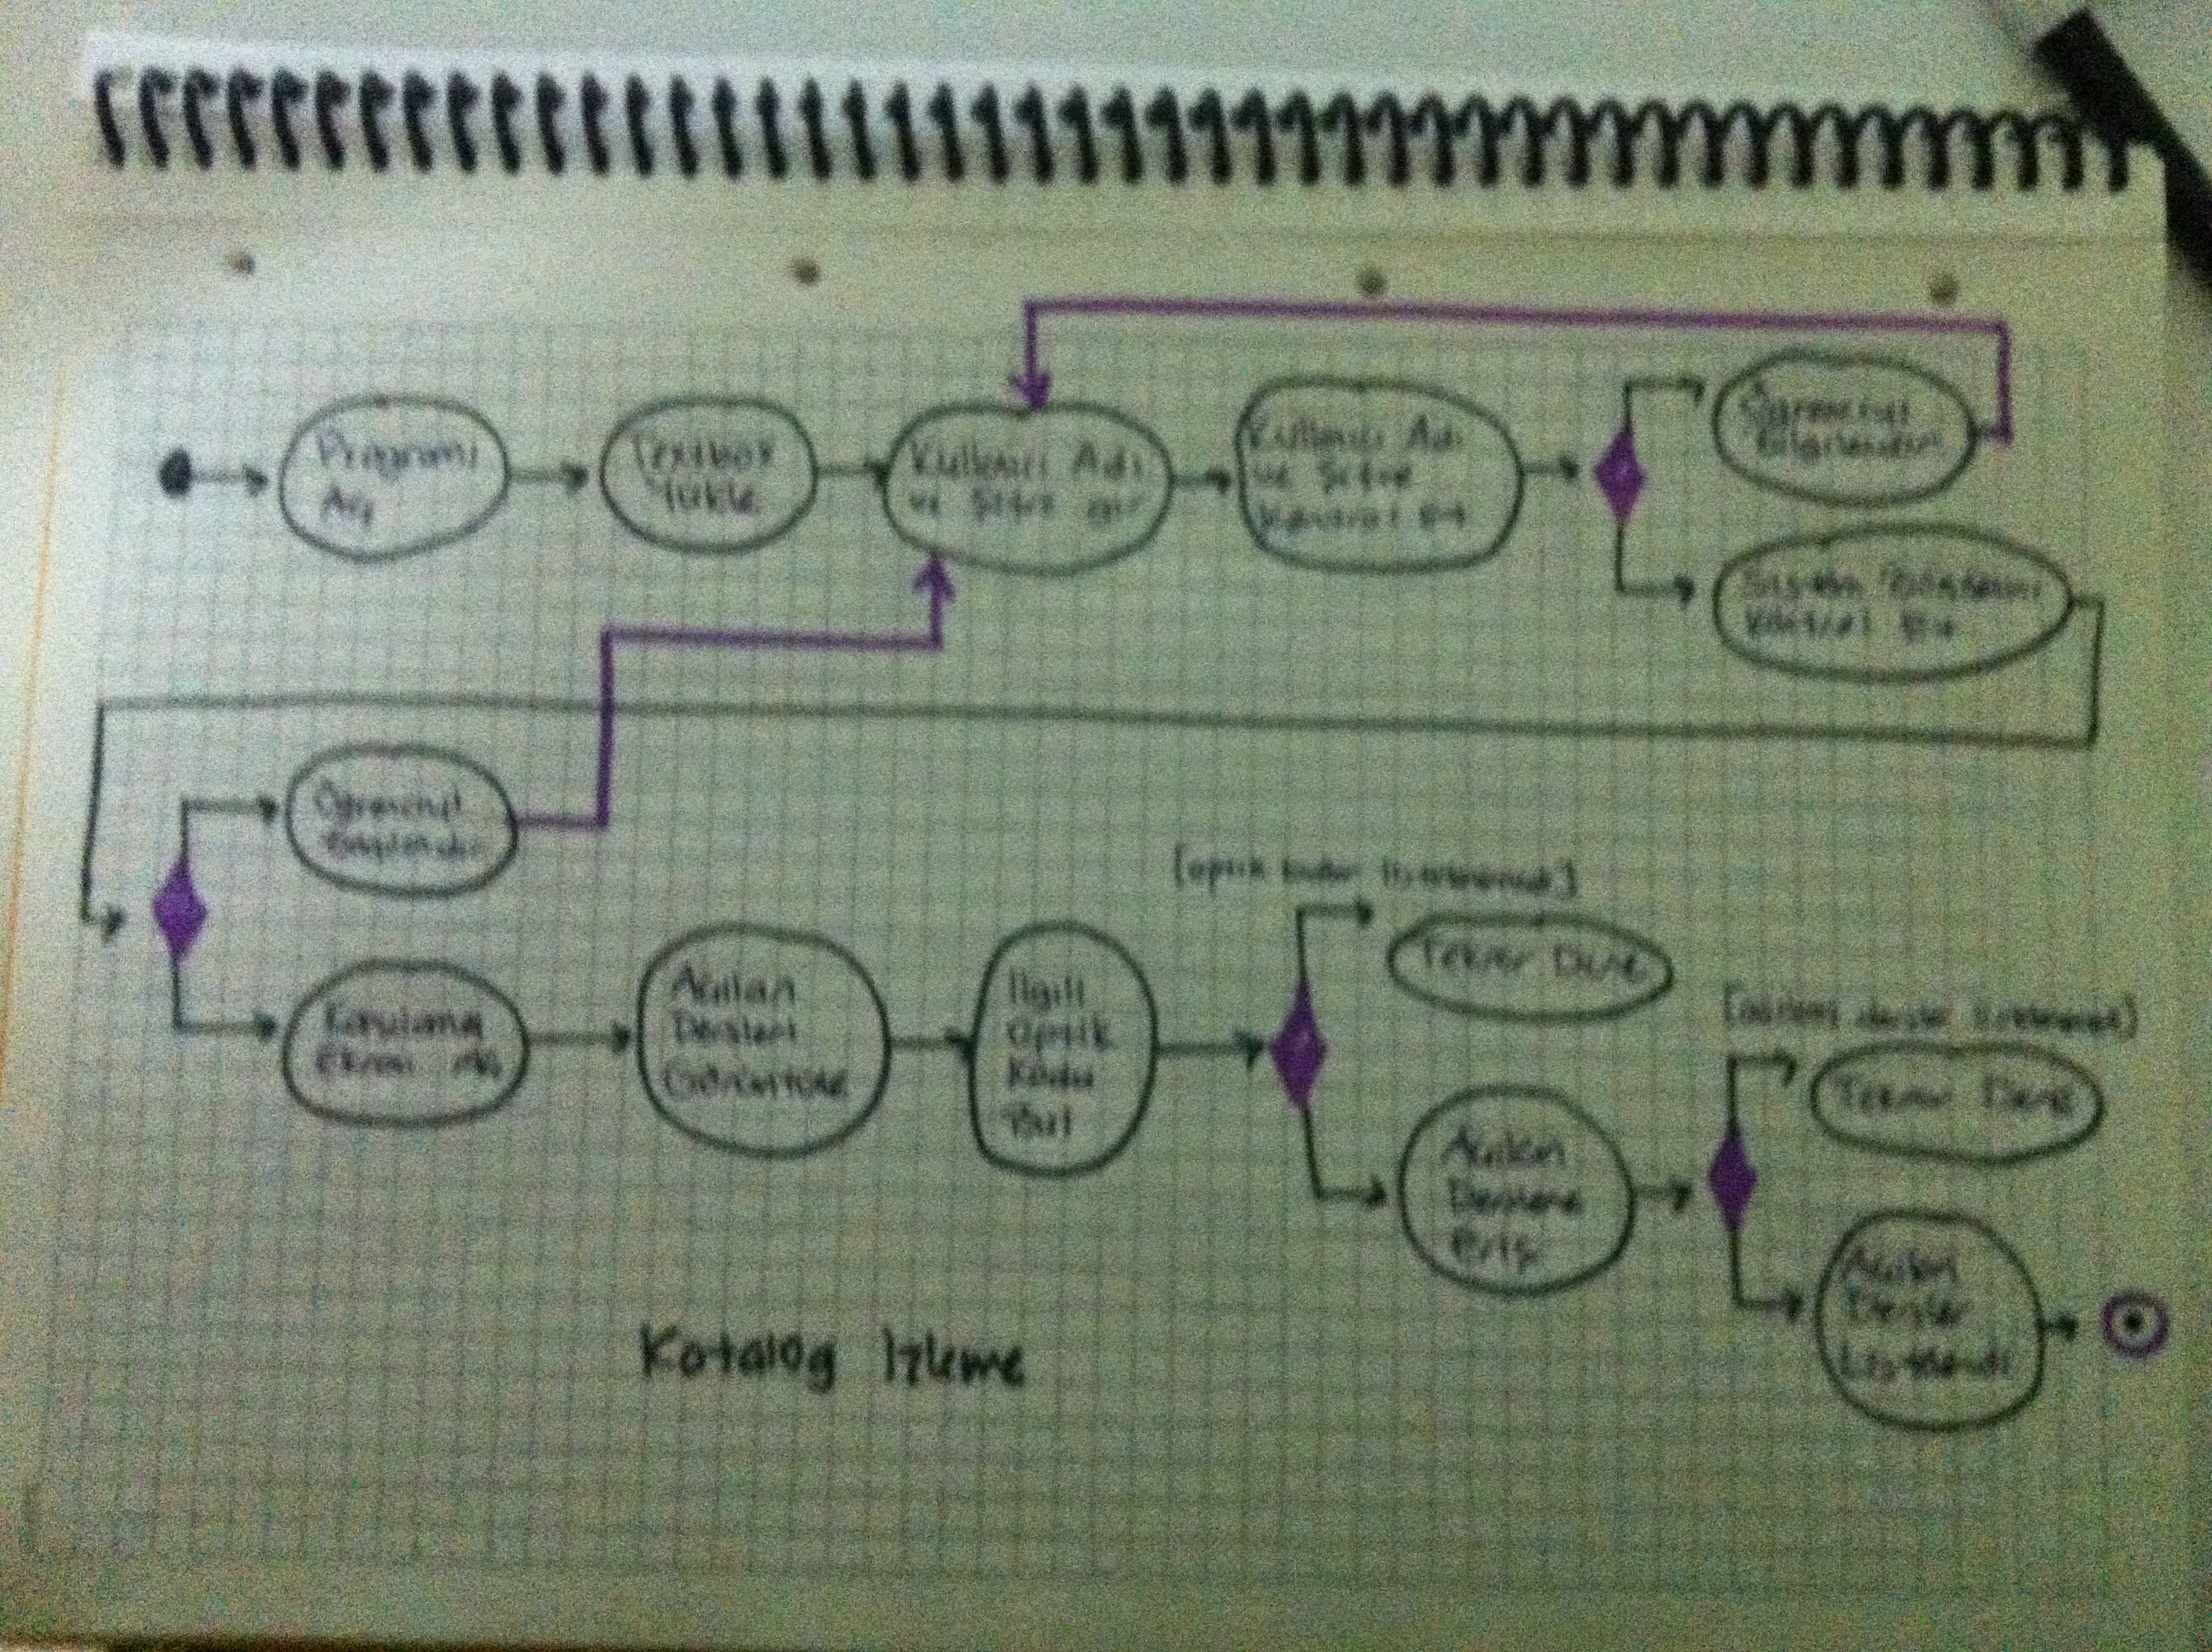 Programı
Aç
Textbox
Yükle
Kullanıcı Adı
ve Şifre gir
Kullanıcı Adı
ve Şifre
Kontrol Et
Öğrenciyi
Bilgilendir
Sistem Bilgilerini
Kontrol Et
Öğrenciyi
Bilgilendir
Ekranı Aç
Açılan
Dersleri
Görüntüle
İlgili
Optik
Kodu
Bul
[optik kodlar listelenemedi]
Tekrar Dene
Açılan
Derslere
Eriş
[açılan dersler listelenemedi]
Tekrar Dene
Açılan
Dersler
Listelendi
Katalog İzleme